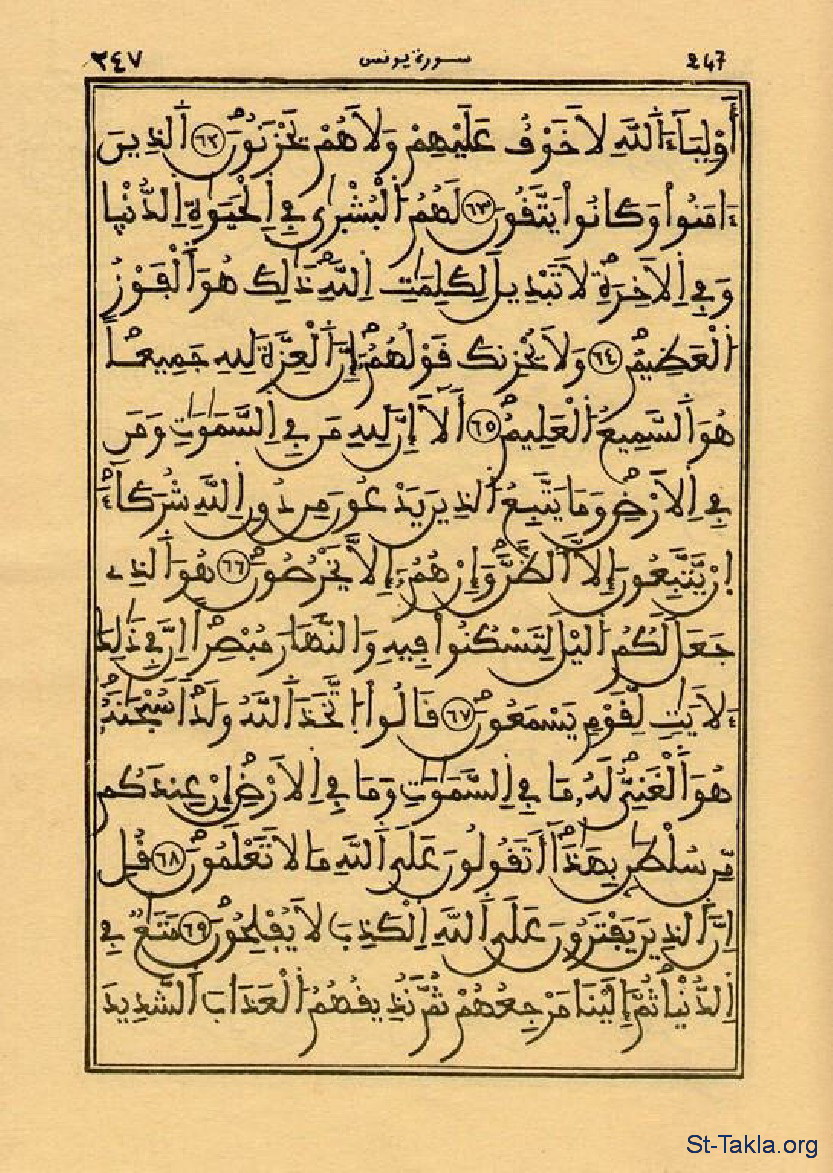 ٢٤٧ سورة يونس 247
أَوْلِيَآءَ اَ۬للَّهِ لَا خَوْفٌ عَلَيْهِمْ وَلَا هُمْ يَحْزَنُونَۖ ٦٢ اَ۬لذِينَ
ءَامَنُواْ وَكَانُواْ يَتَّقُونَ ٦٣ لَهُمُ اُ۬لْبُشْر۪يٰ فِے اِ۬لْحَيَوٰةِ اِ۬لدُّنْي۪ا
وَفِے اِ۬لَاخِرَةِۖ لَا تَبْدِيلَ لِكَلِمَٰتِ اِ۬للَّهِۖ ذَٰلِكَ هُوَ اَ۬لْفَوْزُ
اُ۬لْعَظِيمُۖ ٦٤ وَلَا يُحْزِنكَ قَوْلُهُمُۥٓۖ إِنَّ اَ۬لْعِزَّةَ لِلهِ جَمِيعاًۖ
هُوَ اَ۬لسَّمِيعُ اُ۬لْعَلِيمُۖ ٦٥ أَلَآ إِنَّ لِلهِ مَن فِے اِ۬لسَّمَٰوَٰتِ وَمَن
فِے اِ۬لَارْضِۖ وَمَا يَتَّبِعُ اُ۬لذِينَ يَدْعُونَ مِن دُونِ اِ۬للَّهِ شُرَكَآءَۖ
انْ يَّتَّبِعُونَ إِلَّا اَ۬لظَّنَّ وَإِنْ هُمُۥٓ إِلَّا يَخْرُصُونَۖ ٦٦ هُوَ اَ۬لذِے
جَعَلَ لَكُمُ اُ۬ليْلَ لِتَسْكُنُواْ فِيهِ وَالنَّهَارَ مُبْصِراًۖ اِنَّ فِے ذَٰلِكَ
ءَلَايَٰتٖ لِّقَوْمٖ يَسْمَعُونَۖ ٦٧ قَالُواْ اُ۪تَّخَذَ اَ۬للَّهُ وَلَداٗۖ سُبْحَٰنَهُۥۖ
هُوَ اَ۬لْغَنِيُّۖ لَهُۥ مَا فِے اِ۬لسَّمَٰوَٰتِ وَمَا فِے اِ۬لَارْضِۖ إِنْ عِندَكُم
مِّن سُلْطَٰنِۢ بِهَٰذَآۖ أَتَقُولُونَ عَلَي اَ۬للَّهِ مَا لَا تَعْلَمُونَۖ ٦٨ قُلِ
اِنَّ اَ۬لذِينَ يَفْتَرُونَ عَلَي اَ۬للَّهِ اِ۬لْكَذِبَ لَا يُفْلِحُونَۖ ٦٩ مَتَٰعٞ فِے
اِ۬لدُّنْي۪ا ثُمَّ إِلَيْنَا مَرْجِعُهُمْ ثُمَّ نُذِيقُهُمُ اُ۬لْعَذَابَ اَ۬لشَّدِيدَ
St-Takla.org